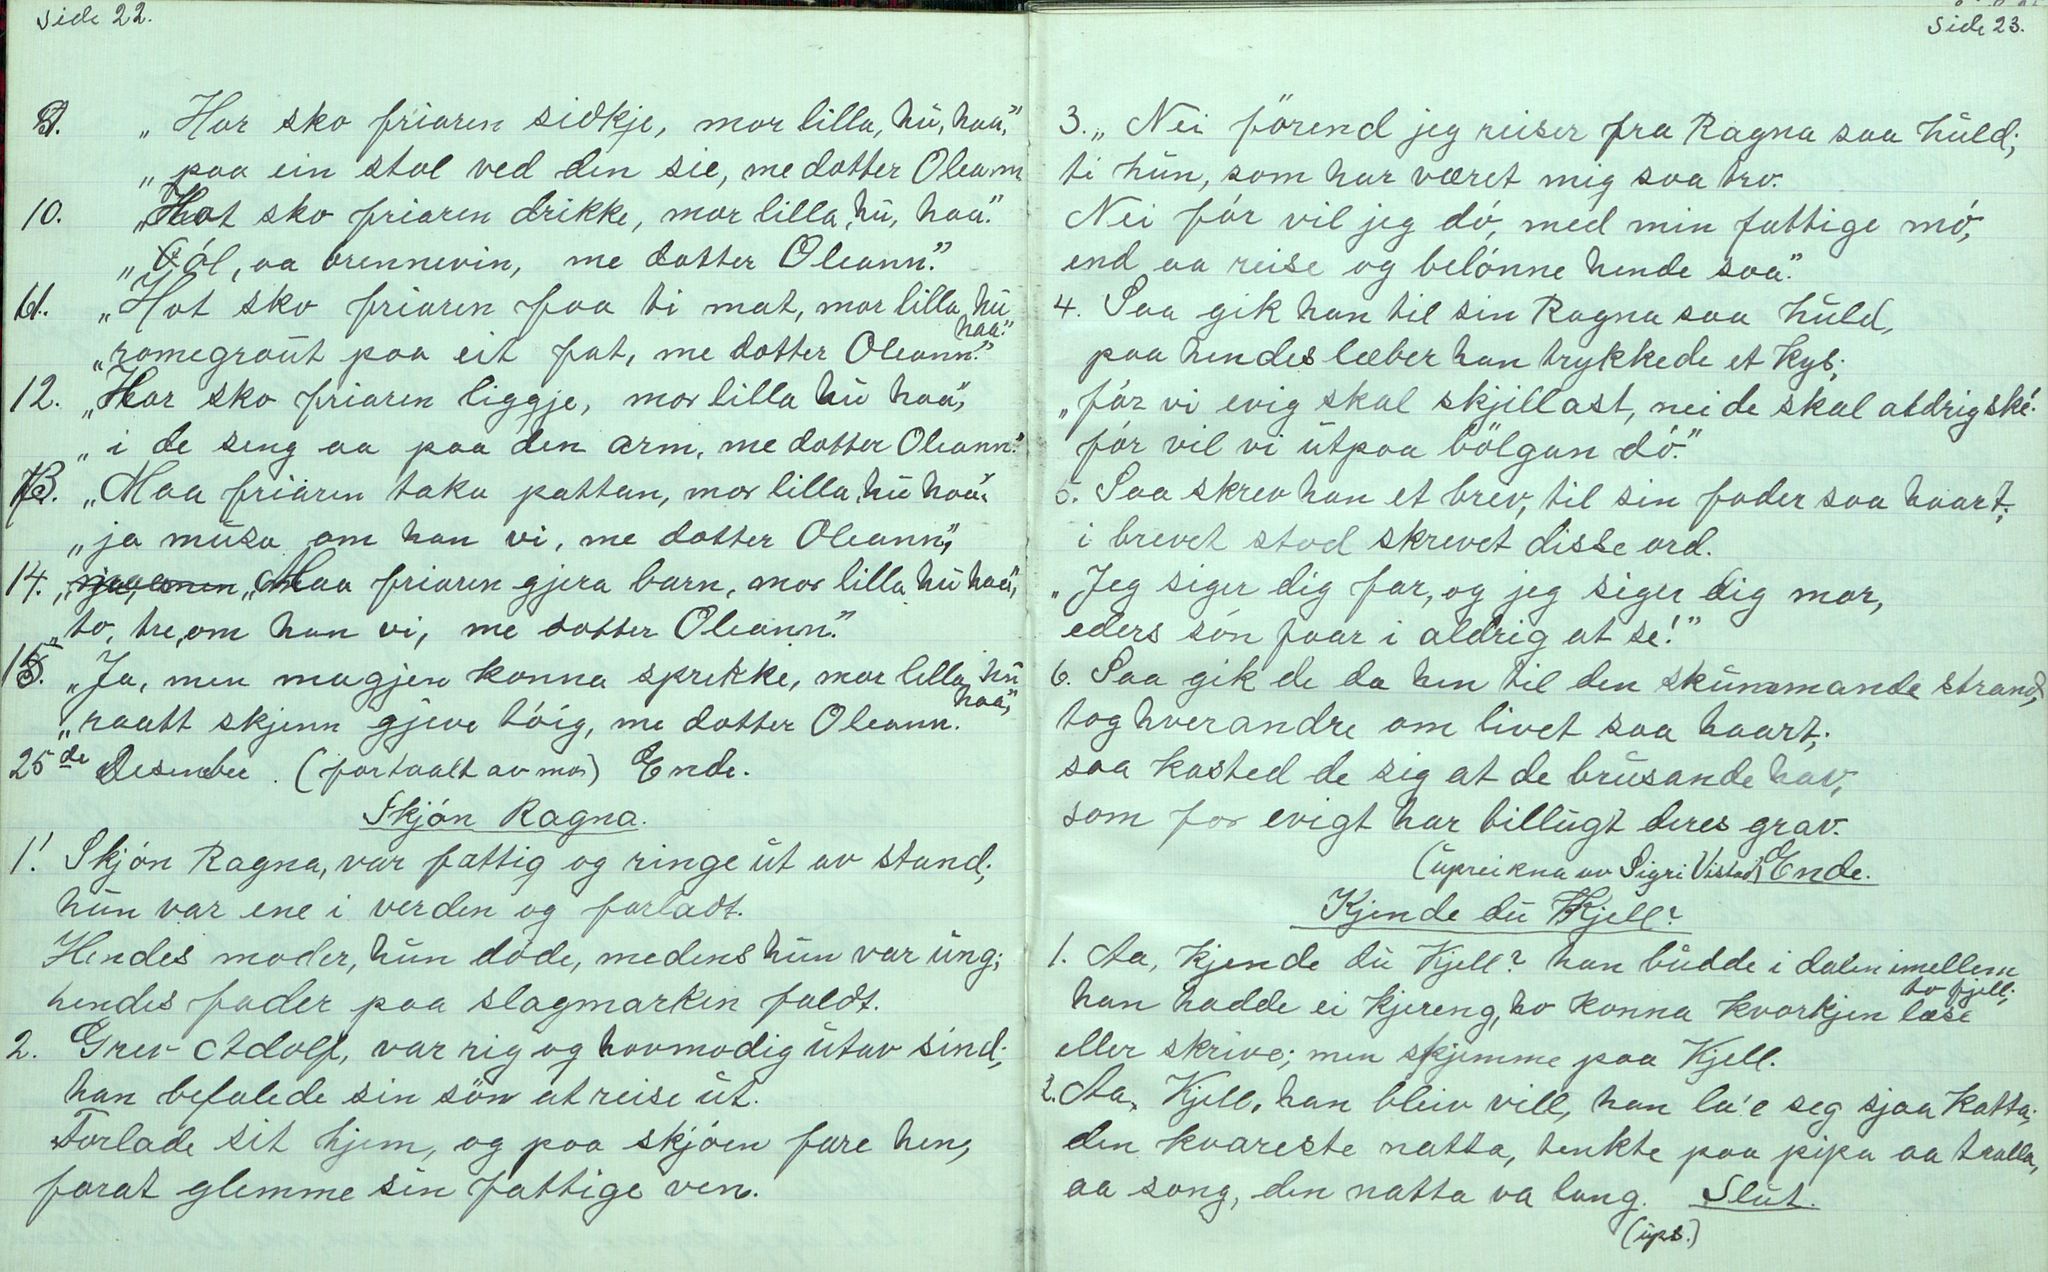 Side 22.
9. „Hor sko friaren sidkje, mor lilla, hu, haa,"
„paa ein stol ved den sie, me dotter Oleann
10. „Hot sko friaren drikke, mor lilla, hu, haa."
„öl, aa brennevin, me dotter Oleann."
11. „Hot sko friaren faa ti mat, mor lilla, hu
haa."
„romegraut paa eit fat, me dotter Oleann."
12. „Hor sko friaren liggje, mor lilla hu haa",
„i de seng aa paa den arm, me dotter Oleann."
13. „Maa friaren taka pattan, mor lilla, hu haa",
„ja musa om han vi, me dotter Oleann",
14. „Maa friaren gjera barn, mor lilla hu haa",
„to, tre, om han vi, me dotter Oleann."
15. „Ja, men magjen konna sprekke, mor lilla, hu
haa",
„raatt skjenn gjeve töig, me dotter Oleann.
25de Desember. (fortaalt av mor) Ende.
Skjön Ragna.
1. Skjön Ragna, var fattig og ringe ut av stand;
hun var ene i verden og forladt.
Hendes moder, hun döde, medens hun var ung;
hendes fader paa slagmarken faldt.
2. Grev Adolf, var rig og hovmodig utav sind;
han befalede sin sön at reise ut.
Forlade sit hjem, og paa skjöen fare hen,
forat glemme sin fattige ven.
Side 23.
3. „Nei förend jeg reiser fra Ragna saa huld;
ti hun, som har været mig saa tro.
Nei för vil jeg dö, med min fattige mö,
end aa reise og belönne hende saa."
4. Saa gik han til sin Ragna saa huld,
paa hendes læber han trykkede et kys;
„för vi evig skal skjillast, nei de skal aldrig ske!
för vil vi utpaa bölgan dö."
5. Saa skrev han et brev, til sin fader saa haart;
i brevet stod skrevet disse ord.
„Jeg siger dig far, og jeg siger dig mor,
eders sön faar i aldrig at se!"
6. Saa gik de da hen til den skummande strand,
tog hverandre om livet saa haart;
saa kasted de sig at de brusande hav,
som for evigt har billugt deres grav.
(upreikna av Sigri Vistad) Ende.
Kjende du Kjell?
1. Aa, Kjende du Kjell? han budde i dalen imellem
to fjell;
han hadde ei kjereng, ho konna kvorkjen læse
eller skrive; men skjemme paa Kjell.
2. Aa, Kjell, han bleiv vill, han la'e seg sjaa Katta;
den kvareste natta, tenkte paa pipa aa tralla,
aa song, den natta va lang. Slut.
(ups.)